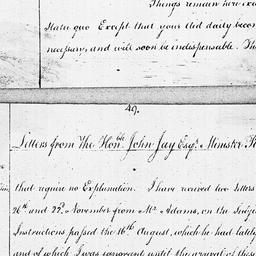 Things remain here exa
Statu quo Except that your Aid daily becom
necessary, and will soon be indispensable. Th
49.
Letters from The Honble John Jay Esqr. Minister
that require no Explanation. I have received two letters
26th and 22d November from Mr Adams, on the Subje
Instructions passed the 16th August, which he had lately
and of which I was ignorant until the arrival of these